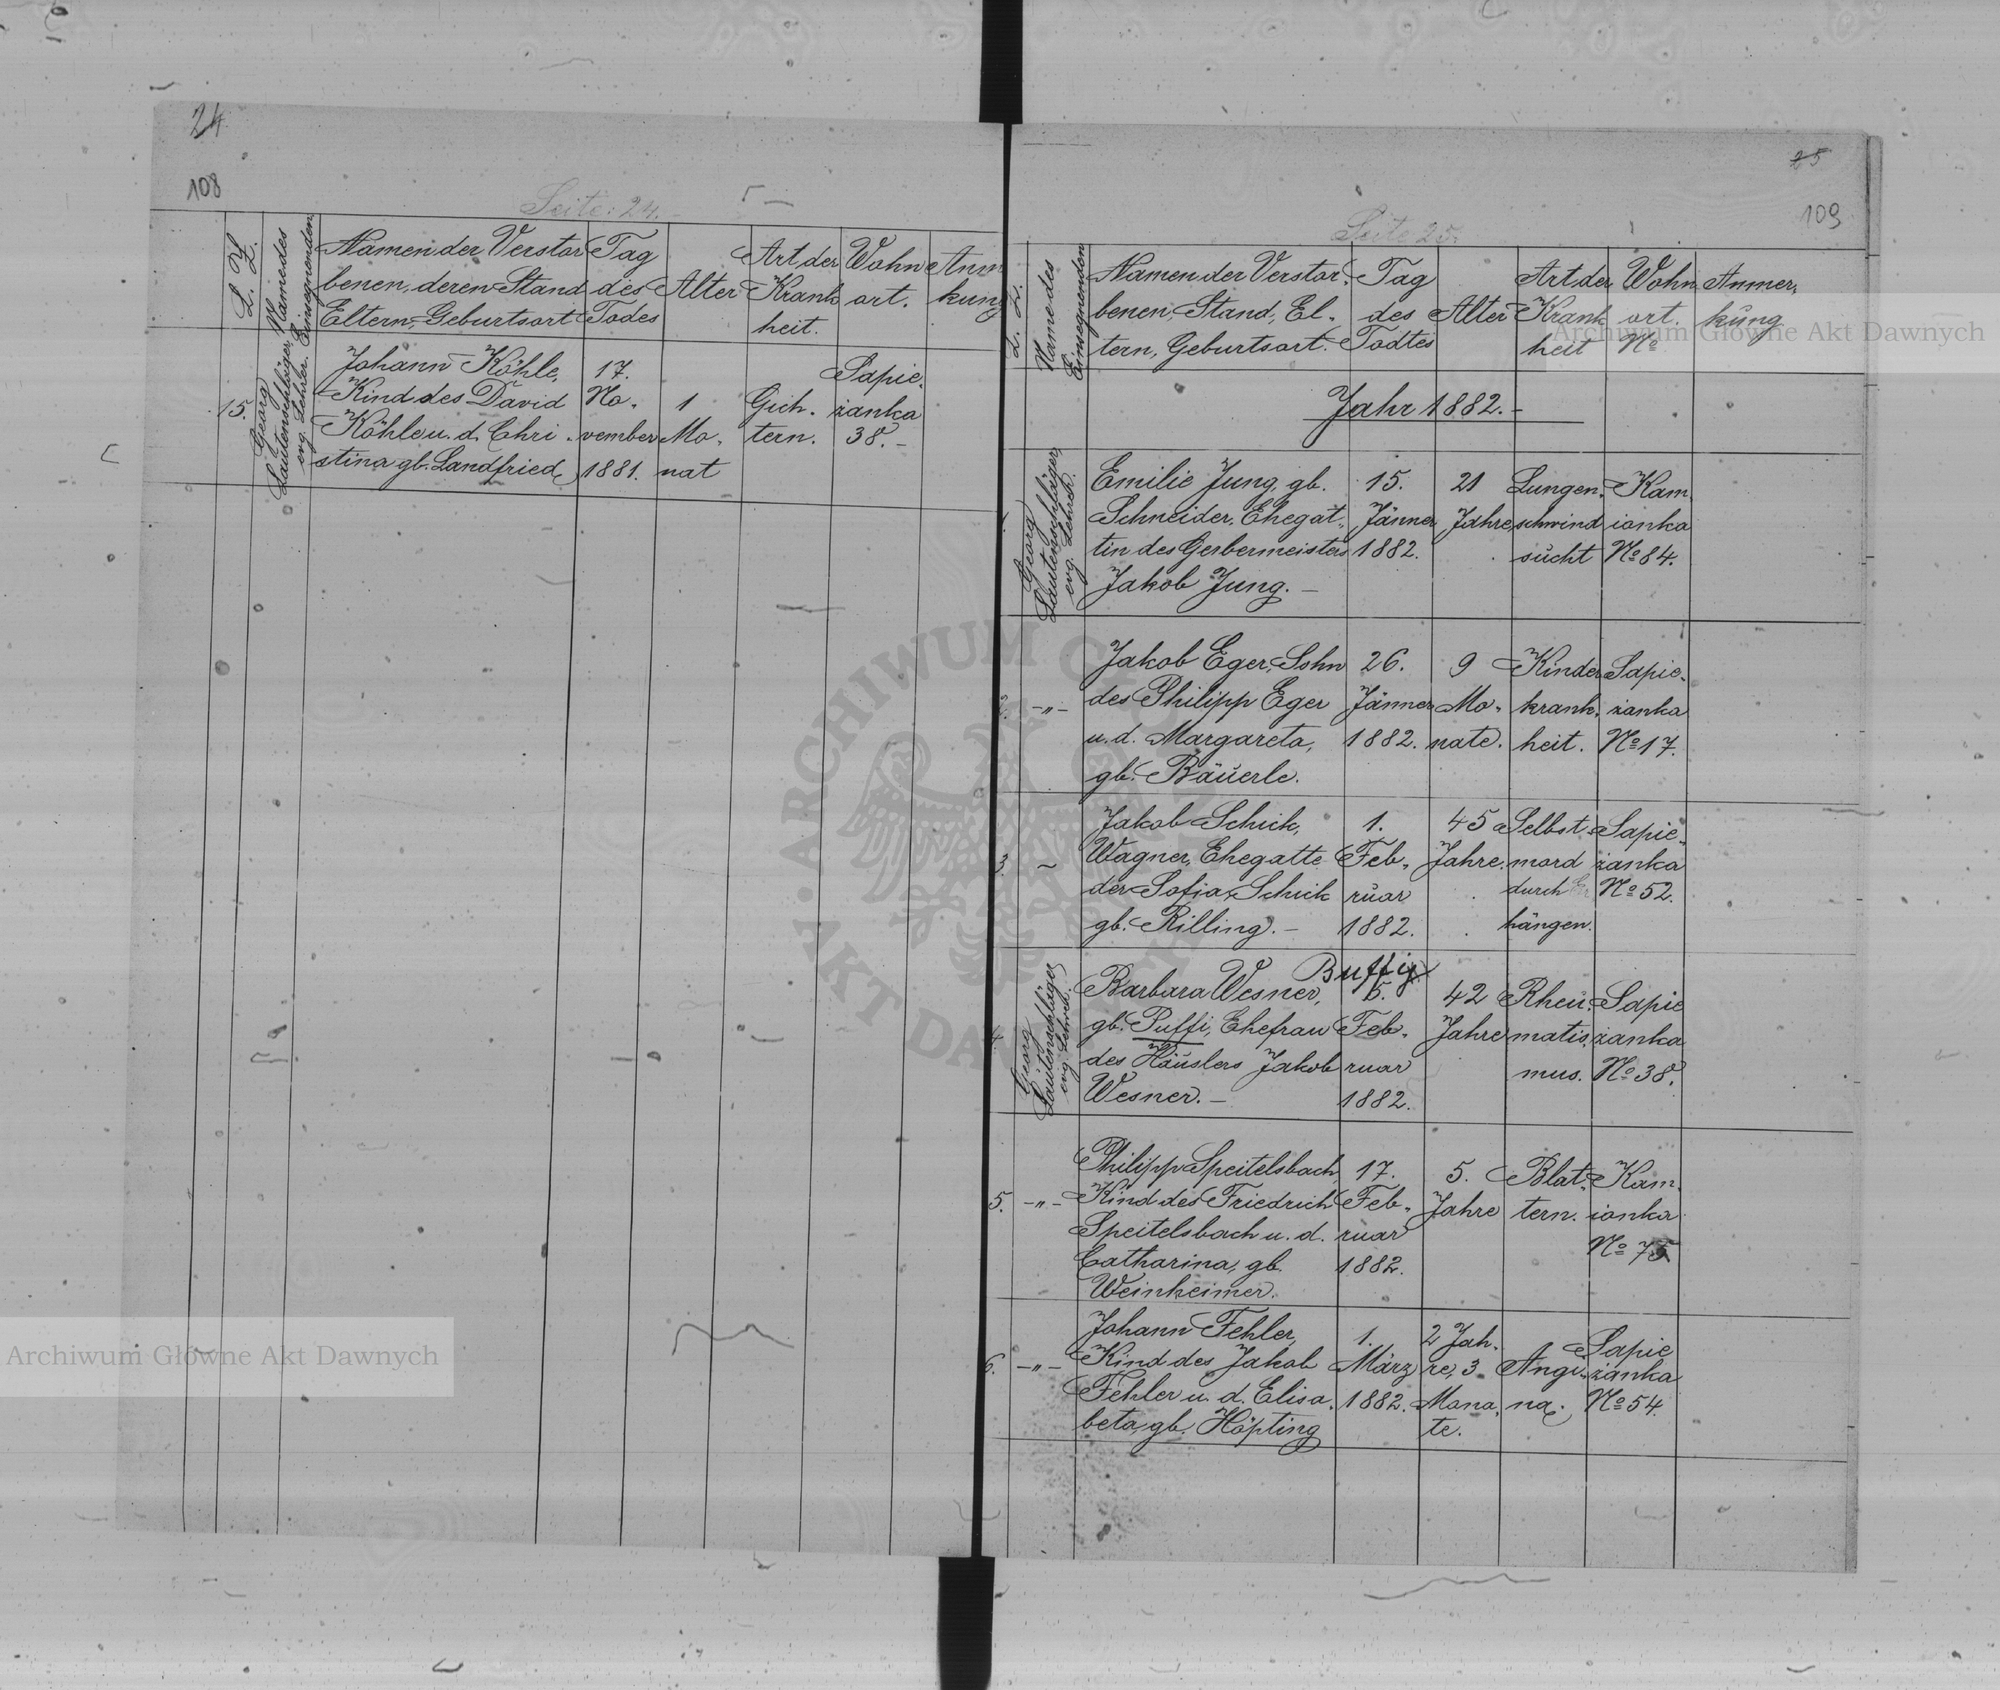 24
108
Seite: 24.
L. Z.
Name des Einsegnenden
Namen der Verstor
benen, deren Stand
Eltern, Geburtsort
Tag
des
Todes
Alter
Art der
Krank
heit.
Wohn
ort.
Anm
kung
15.
Georg
Lautenschläger,
evg. Lehrer.
Johann Köhle,
Kind des David
Köhle u. d. Chri.
stina gb. Landfried
17.
No.
vember
1881.
1
Mo.
nat
Gich.
tern.
Sapie.
żanka
38. –
25
109
Seite 25.
L. Z.
Name des
Einsegnenden
Namen der Verstor.
benen, Stand, El.
tern, Geburtsort.
Tag
des
Todtes
Alter
Art der
Krank
heit
Wohn
ort.
No
Anmer.
kung
Jahr 1882. –
Georg
Lautenschläger
evg. Lehrer.
Emilie Jung, gb.
Schneider, Ehegat.
tin des Gerbermeisters
Jakob Jung. –
15.
Jänner
1882.
21
Jahre
Lungen.
schwind
sucht
Kam.
ionka
No 84.
–"–
Jakob Eger, Sohn
des Philipp Eger
u. d. Margareta,
gb. Bäuerle.
26.
Jänner
1882.
9
Mo.
nate.
Kinder
krank.
heit.
Sapie.
żanka
No 17.
3.
~
Jakob Schick,
Wagner, Ehegatte
der Sofia Schick
gb. Rilling. –
1.
Feb.
ruar
1882.
45
Jahre.
Selbst.
mord
durch
hängen.
Sapie.
żanka
No 52.
4.
Georg
Lautenschläger
evg. Lehrer.
Buffy
Barbara Wesner,
gb. Puffi, Ehefrau
des Häuslers Jakob
Wesner. –
5.
Feb.
ruar
1882.
42
Jahre
Rheu.
matis.
mus.
Sapie
żanka
No 38.
5.
–"–
Philipp Speitelsbach,
Kind des Friedrich
Speitelsbach u. d.
Catharina, gb.
Weinheimer.
17.
Feb.
ruar
1882.
5.
Jahre
Blat.
tern.
Kam.
ionka
No 75
6.
–"–
Johann Fehler,
Kind des Jakob
Fehler u. d. Elisa.
beta, gb. Höpting
1.
März
1882.
2 Jah.
re, 3
Mona.
te.
Angi.
na.
Sapie
żanka
No 54.
Archiwum Główne Akt Dawnych
Archiwum Główne Akt Dawnych